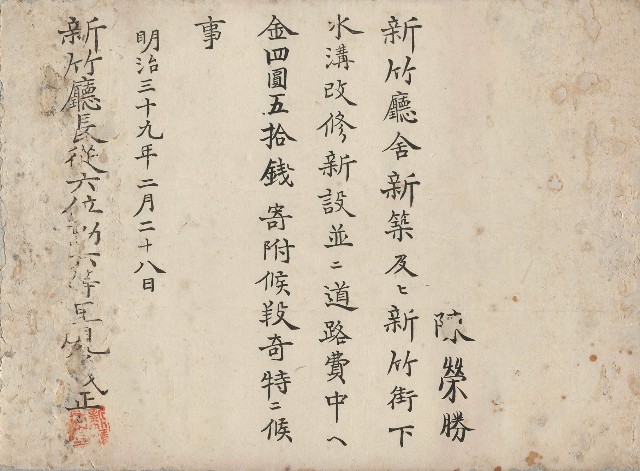 陳榮勝
新竹廳舍新築及ヒ新竹街下
水溝改修新設並ニ道路費中ヘ
金四圓五拾錢寄附候段奇特ニ候
事
明治三十九年二月二十八日
新竹廳長從六位勳六等里見義正